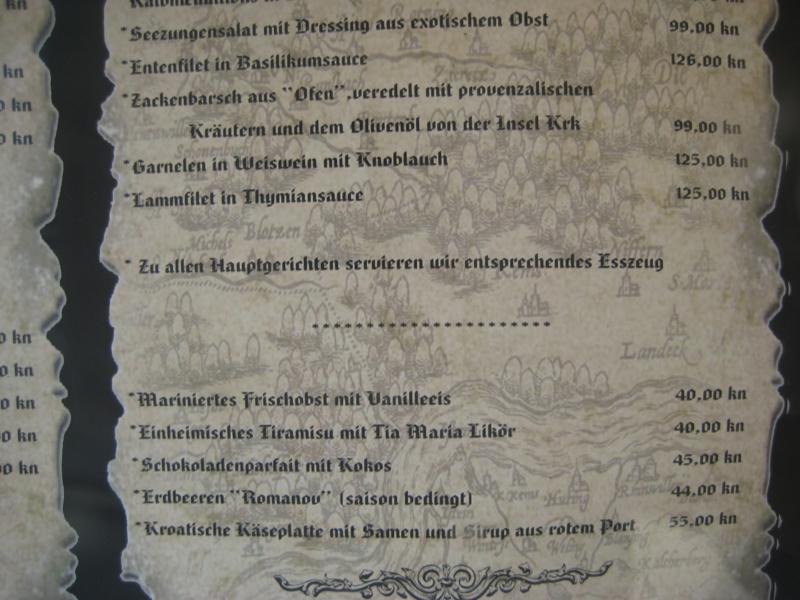 kn
kn
0 kn
0 kn
0 kn
0 kn
0 kn
0 kn
0 kn
*Seezungensalat mit Dressing aus exotischem Obst 99.00 kn
*Entenfilet in Basilikumsauce 126,00 kn
*Zackenbarsch aus "Ofen",veredelt mit provenzalischen
Kräutern und dem Olivenöl von der Insel Krk 99.00 kn
*Garnelen in Weiswein mit Knoblauch 125,00 kn
*Lammfilet in Thymiansauce 125,00 kn
* Zu allen Hauptgerichten servieren wir entsprechendes Esszeug
**********************
*Mariniertes Frischobst mit Vanilleeis 40,00 kn
*Einheimisches Tiramisu mit Tia Maria Likör 40,00 kn
*Schokoladenparfait mit Kokos 45,00 kn
*Erdbeeren "Romanov" (saison bedingt) 44,00 kn
*Kroatische Käseplatte mit Samen und Sirup aus rotem Port 55,00 kn
Blotzen
Michels
Landeck
Kems